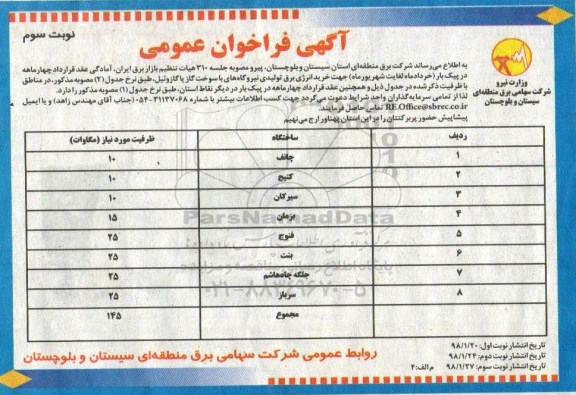 نوبت سوم
آگهی فراخوان عمومی
وزارت نیرو
شرکت سهامی برق منطقه‌ای
سیستان و بلوچستان
به اطلاع می‌رساند شرکت برق منطقه‌ای استان سیستان وبلوچستان، پیرو مصوبه جلسه ۳۱۰ هیات تنظیم بازار برق ایران، آمادگی عقد قرارداد چهارماهه
در پیک بار (خردادماه لغایت شهریورماه) جهت خرید انرژی برق تولیدی نیروگاه‌های با سوخت گاز یا گازوئیل، طبق نرخ جدول (۲) مصوبه مذکور، در مناطق
با ظرفیت ذکر شده در جدول ذیل و همچنین عقد قرارداد چهارماهه در پیک بار در دیگر نقاط استان، طبق نرخ جدول (۱) مصوبه مذکور را دارد.
لذا از تمامی سرمایه‌گذاران واجد شرایط دعوت می‌گردد جهت کسب اطلاعات بیشتر با شماره ۳۱۱۳۷۰۶۸-۰۵۴ (جناب آقای مهندس زاهد) و یا ایمیل
RE.Office@sbrec.co.ir تماس حاصل فرمایند.
پیشاپیش حضور پربرکتتان را در این استان پهناور ارج می‌نهیم
ردیف ساختگاه ظرفیت مورد نیاز (مگاوات)
۱ چانف ۱۰
۲ کتیج ۱۰
۳ سیرکان ۱۰
۴ بزمان ۱۵
۵ فنوج ۲۵
۶ بنت ۲۵
۷ جلگه چاه‌هاشم ۲۵
۸ سرباز ۲۵
مجموع ۱۴۵
ParsNamadData
۰۲۱-۸۸۳۴۹۶۷۰-۵
تاریخ انتشار نوبت اول: ۹۸/۱/۲۰
تاریخ انتشار نوبت دوم: ۹۸/۱/۲۴
تاریخ انتشار نوبت سوم: ۹۸/۱/۲۷ م الف: ۴
روابط عمومی شرکت سهامی برق منطقه‌ای سیستان و بلوچستان